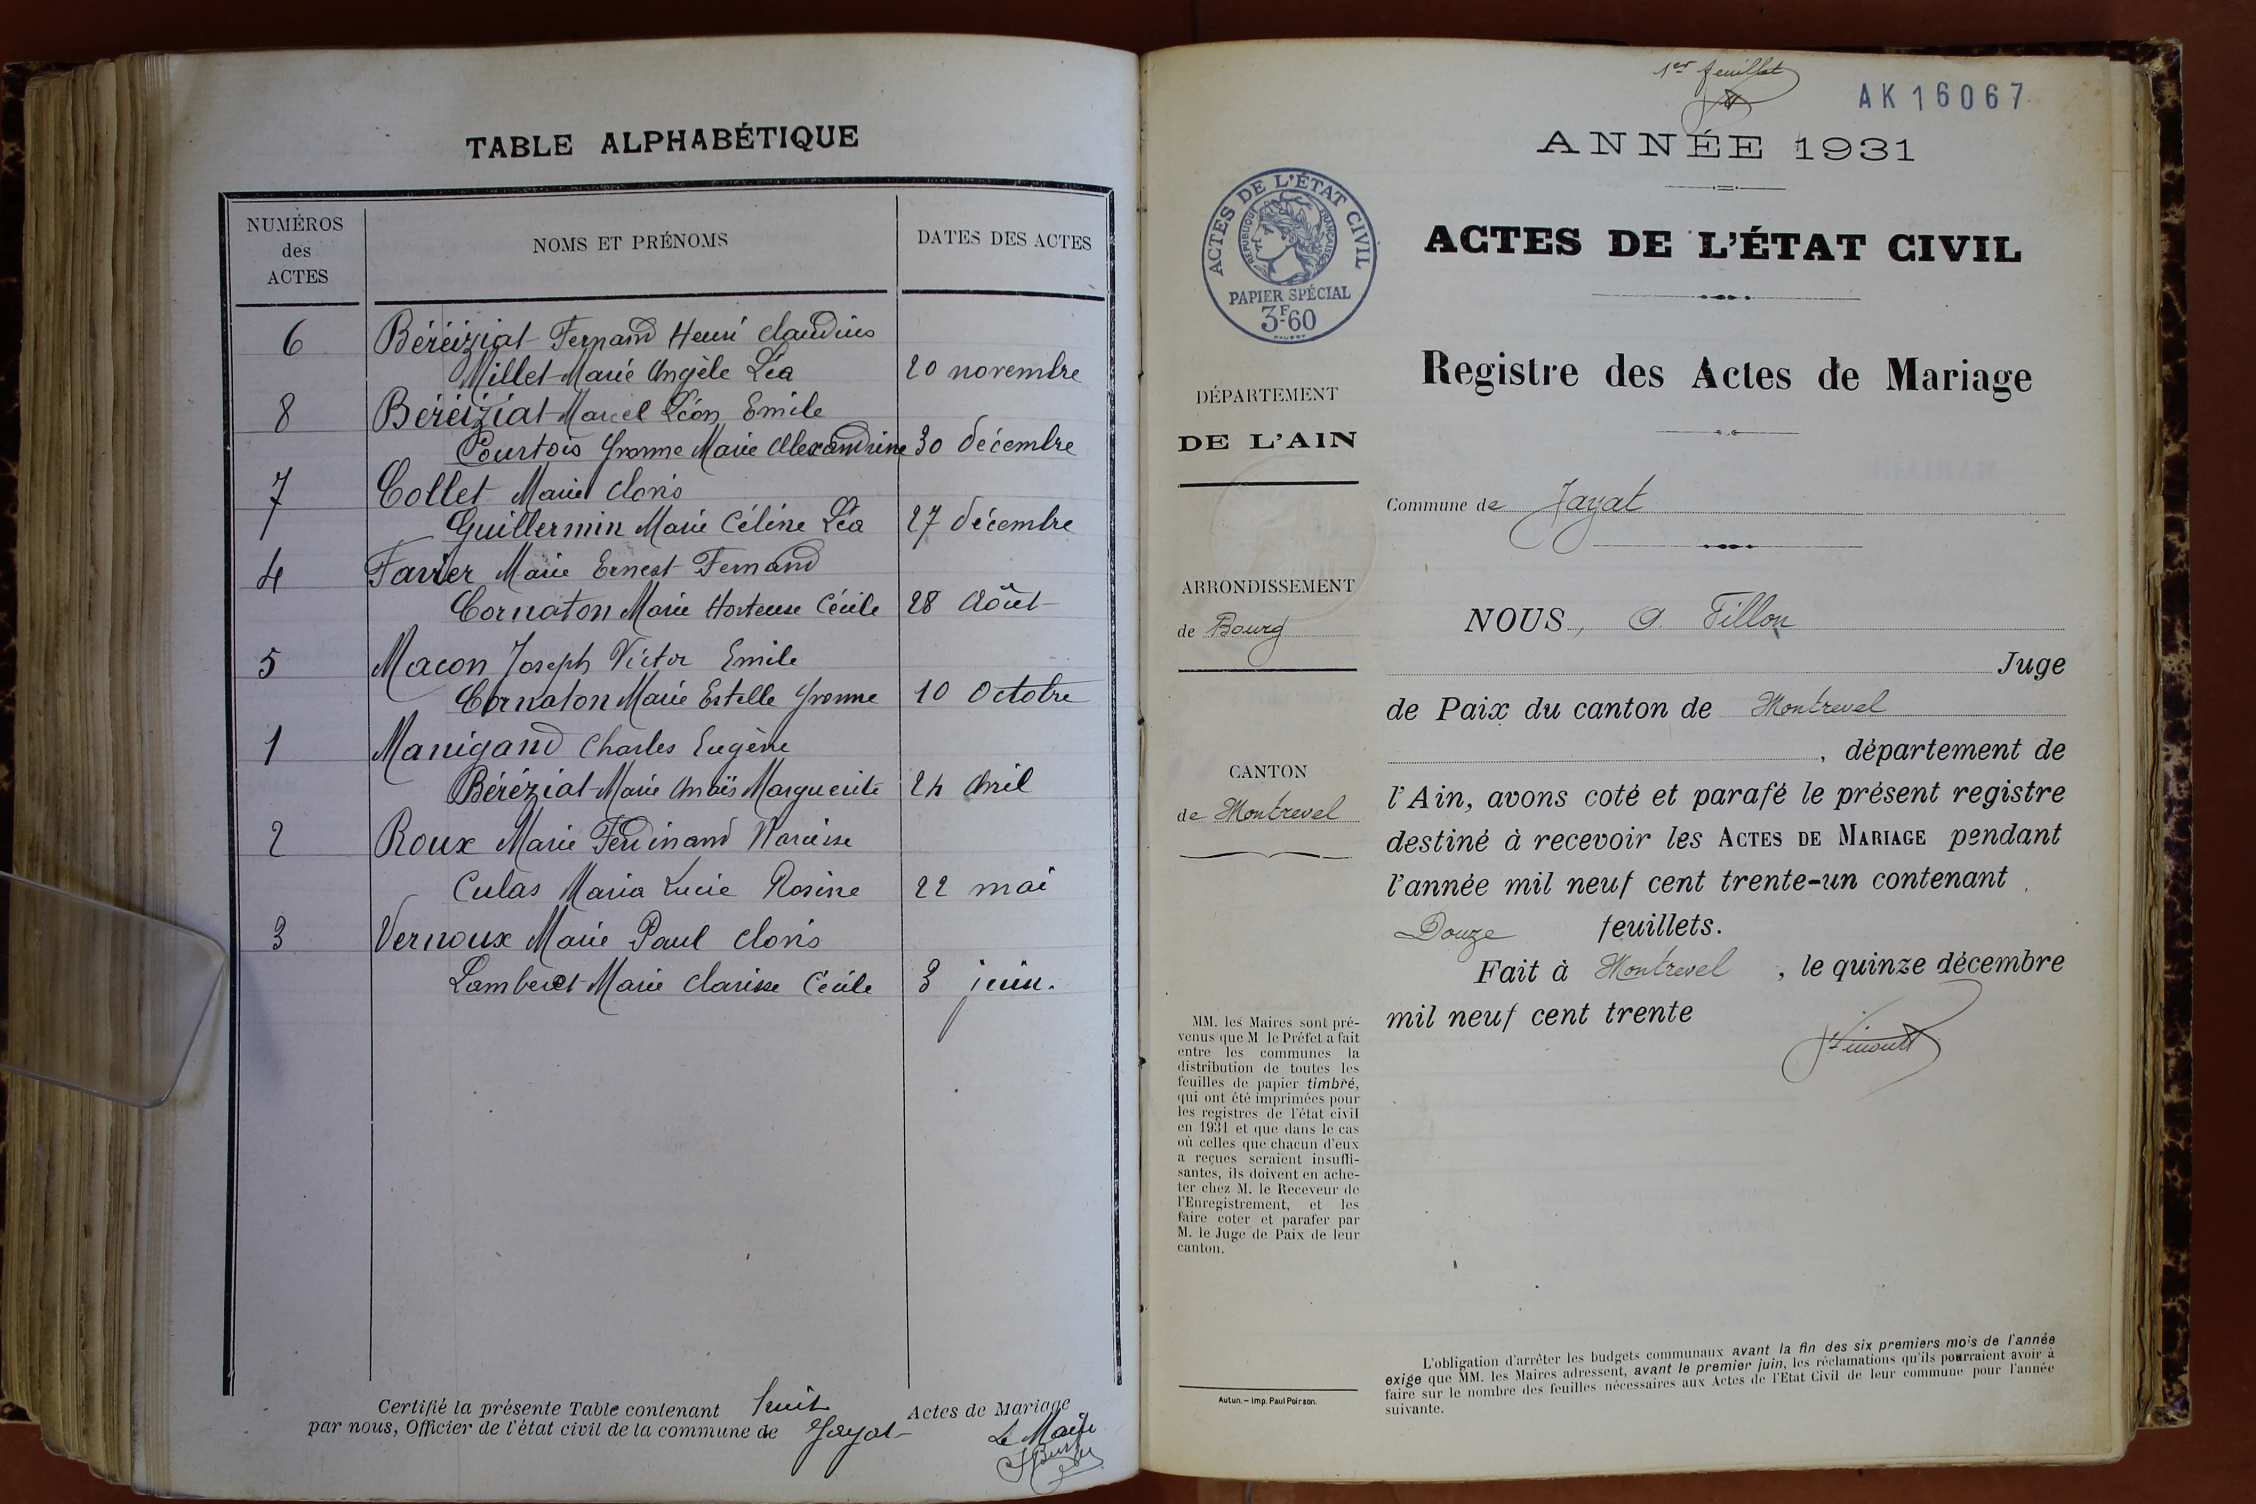 TABLE ALPHABÉTIQUE
NUMÉROS
des
ACTES
NOMS ET PRÉNOMS
DATES DES ACTES
6 Béréiziat Fernand Henri Claudius
Millet Marie Angèle Léa 20 novembre
8 Béréiziat Marcel Léon Emile
Courtois Yvonne Marie Alexandrine 30 décembre
7 Collet Marie Clovis
Guillermin Marie Céline Léa 27 décembre
4 Favier Marie Ernest Fernand
Cornaton Marie Hortense Cécile 28 Août
5 Macon Joseph Victor Emile
Cornaton Marie Estelle Yvonne 10 Octobre
1 Manigand Charles Eugène
Béréziat Marie Anaïs Marguerite 24 Avril
2 Roux Marie Ferdinand Narcisse
Culas Maria Lucie Rosine 22 mai
3 Vernoux Marie Paul Clovis
Lamberet Marie Clarisse Cécile 3 juin.
Certifié la présente Table contenant huit Actes de Mariage
par nous, Officier de l'état civil de la commune de Jayat
Le Maire
1er feuillet
AK16067
ANNÉE 1931
ACTES DE L'ÉTAT CIVIL
RÉPUBLIQUE FRANÇAISE
PAPIER SPÉCIAL
3F60
ACTES DE L'ÉTAT CIVIL
Registre des Actes de Mariage
DÉPARTEMENT
DE L'AIN
Commune de Jayat
ARRONDISSEMENT
de Bourg
CANTON
de Montrevel
NOUS, A. Tillon
Juge
de Paix du canton de Montrevel
, département de
l'Ain, avons coté et parafé le présent registre
destiné à recevoir les ACTES DE MARIAGE pendant
l'année mil neuf cent trente-un contenant
Douze feuillets.
Fait à Montrevel, le quinze décembre
mil neuf cent trente
MM. les Maires sont pré-
venus que M le Préfet a fait
entre les communes la
distribution de toutes les
feuilles de papier timbré,
qui ont été imprimées pour
les registres de l'état civil
en 1931 et que dans le cas
où celles que chacun d'eux
a reçues seraient insuffi-
santes, ils doivent en ache-
ter chez M. le Receveur de
l'Enregistrement, et les
faire coter et parafer par
M. le Juge de Paix de leur
canton.
Autun. — Imp. Paul Poirson.
L'obligation d'arrêter les budgets communaux avant la fin des six premiers mois de l'année
exige que MM. les Maires adressent, avant le premier juin, les réclamations qu'ils pourraient avoir à
faire sur le nombre des feuilles nécessaires aux Actes de l'Etat Civil de leur commune pour l'année
suivante.